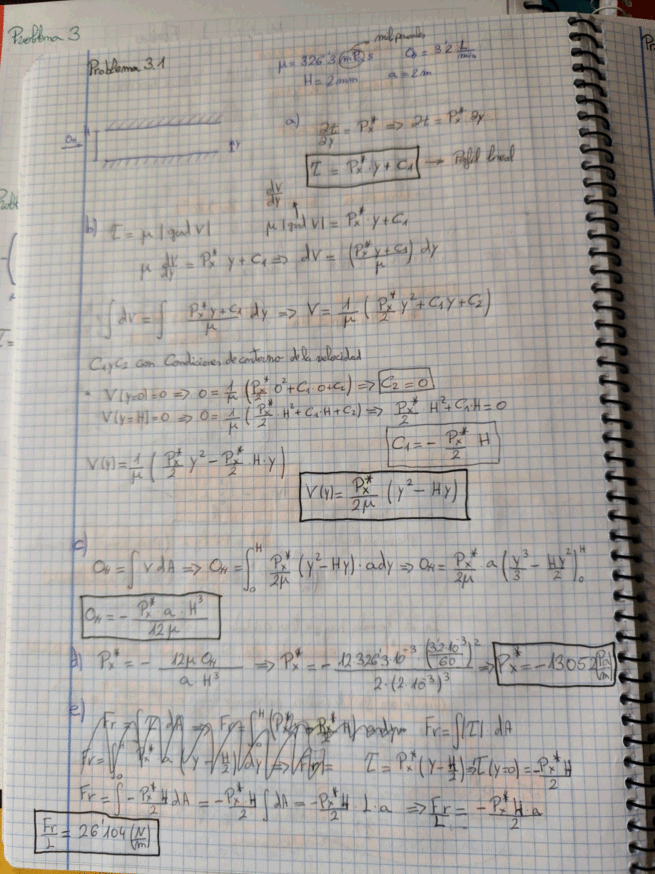 Problema 3
Problema 3.1
milipascales
μ = 326'3 mPa·s
Q_H = 3'2 L/min
H = 2mm
a = 2m
a) ∂τ/∂y = P_x* ⇒ ∂τ = P_x* ∂y
τ = P_x* · y + C₁ → Perfil lineal
b) τ = μ |grad V|
dV/dy
μ |grad V| = P_x* y + C₁
μ dV/dy = P_x* y + C₁ ⇒ dV = (P_x* y + C₁)/μ dy
∫ dV = ∫ (P_x* y + C₁)/μ dy ⇒ V = 1/μ (P_x*/2 y² + C₁y + C₂)
C₁ y C₂ con Condiciones de contorno de la velocidad
· V(y=0) = 0 ⇒ 0 = 1/μ (P_x*/2 0² + C₁·0 + C₂) ⇒ C₂ = 0
V(y=H) = 0 ⇒ 0 = 1/μ (P_x*/2 · H² + C₁·H + C₂) ⇒ P_x*/2 H² + C₁·H = 0
C₁ = - P_x*/2 H
V(y) = 1/μ (P_x*/2 y² - P_x*/2 · H·y)
V(y) = P_x*/2μ (y² - Hy)
c)
Q_H = ∫ V dA ⇒ Q_H = ∫₀^H P_x*/2μ (y² - Hy) · a dy ⇒ Q_H = P_x*/2μ a (y³/3 - Hy²/2)₀^H
Q_H = - P_x* a · H³/12μ
d) P_x* = - 12μ Q_H/a H³ ⇒ P_x* = - 12·326'3·10⁻³ · (3'2·10⁻³/60)²/2·(2·10⁻³)³ ⇒ P_x* = -13052 (Pa/m)
e)
Fr = ∫|τ| · dA
τ = P_x* (y - H/2) ⇒ τ(y=0) = -P_x*/2 H
Fr = ∫ -P_x*/2 H dA = -P_x*/2 H ∫ dA = -P_x*/2 H · L · a ⇒ Fr/L = -P_x* H/2 · a
Fr/L = 26'104 (N/m)